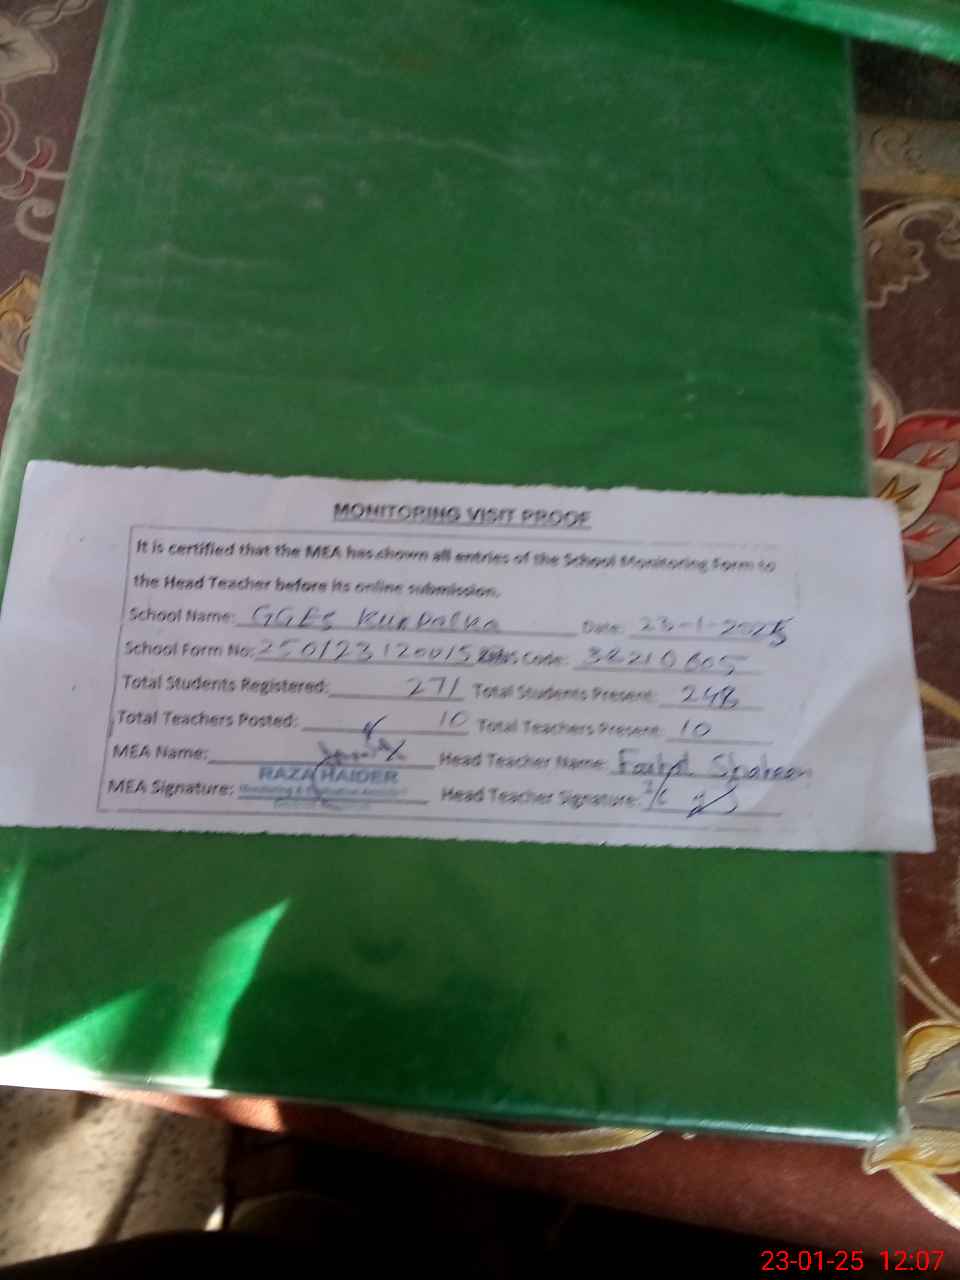 MONITORING VISIT PROOF
It is certified that the MEA has shown all entries of the School Monitoring Form to
the Head Teacher before its online submission.
School Name: GGES Date: 23-1-2025
School Form No: Code:
Total Students Registered: 271 Total Students Present: 248
Total Teachers Posted: 10 Total Teachers Present: 10
MEA Name: Head Teacher Name:
RAZA HAIDER
MEA Signature: Head Teacher Signature:
Monitoring & Evaluation Assistant
23-01-25 12:07